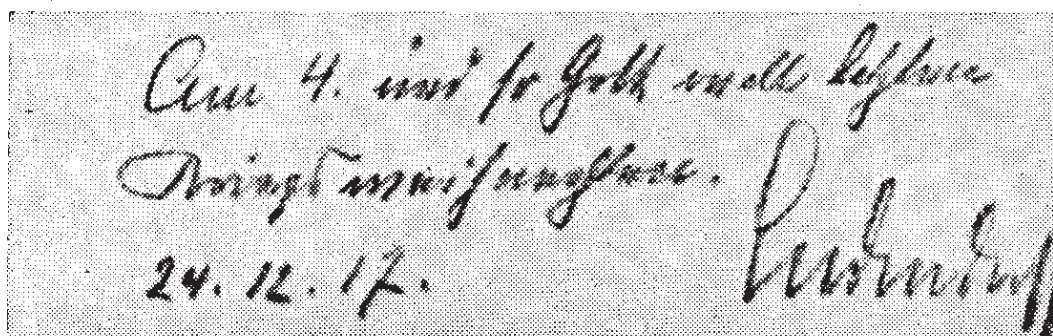 Am 4. und so Gott will letzten
Kriegsweihnachten.
24. 12. 17.
Ludendorff